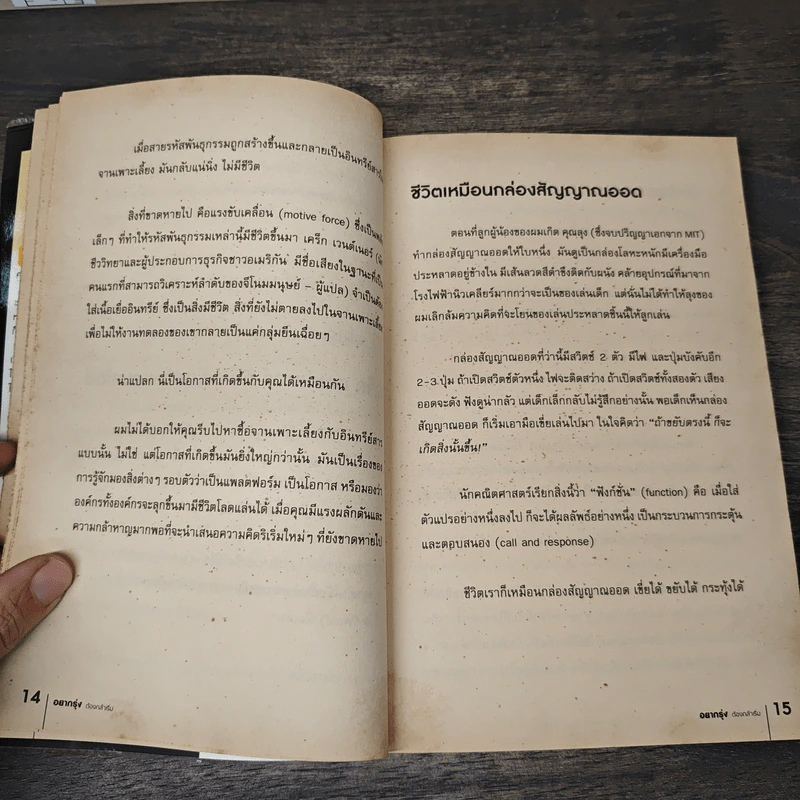 เมื่อสายรหัสพันธุกรรมถูกสร้างขึ้นและกลายเป็นอินทรีย์สารใน
จานเพาะเลี้ยง มันกลับแน่นิ่ง ไม่มีชีวิต
สิ่งที่ขาดหายไป คือแรงขับเคลื่อน (motive force) ซึ่งเป็น
เล็กๆ ที่ทำให้รหัสพันธุกรรมเหล่านี้มีชีวิตขึ้นมา เคร็ก เวนต์เนอร์
ชีววิทยาและผู้ประกอบการธุรกิจชาวอเมริกัน มีชื่อเสียงในฐานะที่เป็น
คนแรกที่สามารถวิเคราะห์ลำดับของจีโนมมนุษย์ – ผู้แปล) จำเป็นต้อง
ใส่เนื้อเยื่ออินทรีย์ ซึ่งเป็นสิ่งมีชีวิต สิ่งที่ยังไม่ตายลงไปในจานเพาะเลี้ยง
เพื่อไม่ให้งานทดลองของเขากลายเป็นแค่กลุ่มยีนเฉื่อยๆ
น่าแปลก นี่เป็นโอกาสที่เกิดขึ้นกับคุณได้เหมือนกัน
ผมไม่ได้บอกให้คุณรีบไปหาซื้อจานเพาะเลี้ยงกับอินทรีย์สาร
แบบนั้น ไม่ใช่ แต่โอกาสที่เกิดขึ้นมันยิ่งใหญ่กว่านั้น มันเป็นเรื่องของ
การรู้จักมองสิ่งต่างๆ รอบตัวว่าเป็นแพลตฟอร์ม เป็นโอกาส หรือมองว่า
องค์กรทั้งองค์กรจะลุกขึ้นมามีชีวิตโลดแล่นได้ เมื่อคุณมีแรงผลักดันและ
ความกล้าหาญมากพอที่จะนำเสนอความคิดริเริ่มใหม่ๆ ที่ยังขาดหายไป
14 อยากรุ่ง ต้องกล้าเริ่ม
ชีวิตเหมือนกล่องสัญญาณออด
ตอนที่ลูกผู้น้องของผมเกิด คุณลุง (ซึ่งจบปริญญาเอกจาก MIT)
ทำกล่องสัญญาณออดให้ใบหนึ่ง มันดูเป็นกล่องโลหะหนักมีเครื่องมือ
ประหลาดอยู่ข้างใน มีเส้นลวดสีดำขึงติดกับผนัง คล้ายอุปกรณ์ที่มาจาก
โรงไฟฟ้านิวเคลียร์มากกว่าจะเป็นของเล่นเด็ก แต่นั่นไม่ได้ทำให้ลุงของ
ผมเลิกล้มความคิดที่จะโยนของเล่นประหลาดชิ้นนี้ให้ลูกเล่น
กล่องสัญญาณออดที่ว่านี้มีสวิตช์ 2 ตัว มีไฟ และปุ่มบังคับอีก
2-3 ปุ่ม ถ้าเปิดสวิตช์ตัวหนึ่ง ไฟจะติดสว่าง ถ้าเปิดสวิตช์ทั้งสองตัว เสียง
ออดจะดัง ฟังดูน่ากลัว แต่เด็กเล็กกลับไม่รู้สึกอย่างนั้น พอเด็กเห็นกล่อง
สัญญาณออด ก็เริ่มเอามือเขี่ยเล่นไปมา ในใจคิดว่า “ถ้าขยับตรงนี้ ก็จะ
เกิดสิ่งนั้นขึ้น!”
นักคณิตศาสตร์เรียกสิ่งนี้ว่า “ฟังก์ชั่น” (function) คือ เมื่อใส่
ตัวแปรอย่างหนึ่งลงไป ก็จะได้ผลลัพธ์อย่างหนึ่ง เป็นกระบวนการกระตุ้น
และตอบสนอง (call and response)
ชีวิตเราก็เหมือนกล่องสัญญาณออด เขี่ยได้ ขยับได้ กระทุ้งได้
อยากรุ่ง ต้องกล้าเริ่ม 15